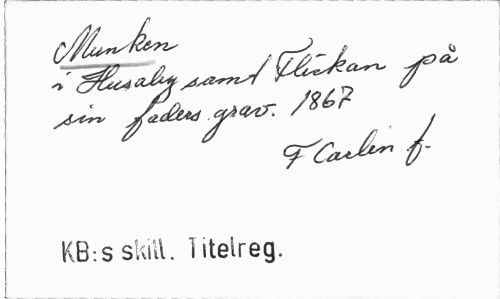 Munken
i Husaby samt Flickan på
sin faders grav. 1867
F Carlin f.
KB:s skill. Titelreg.